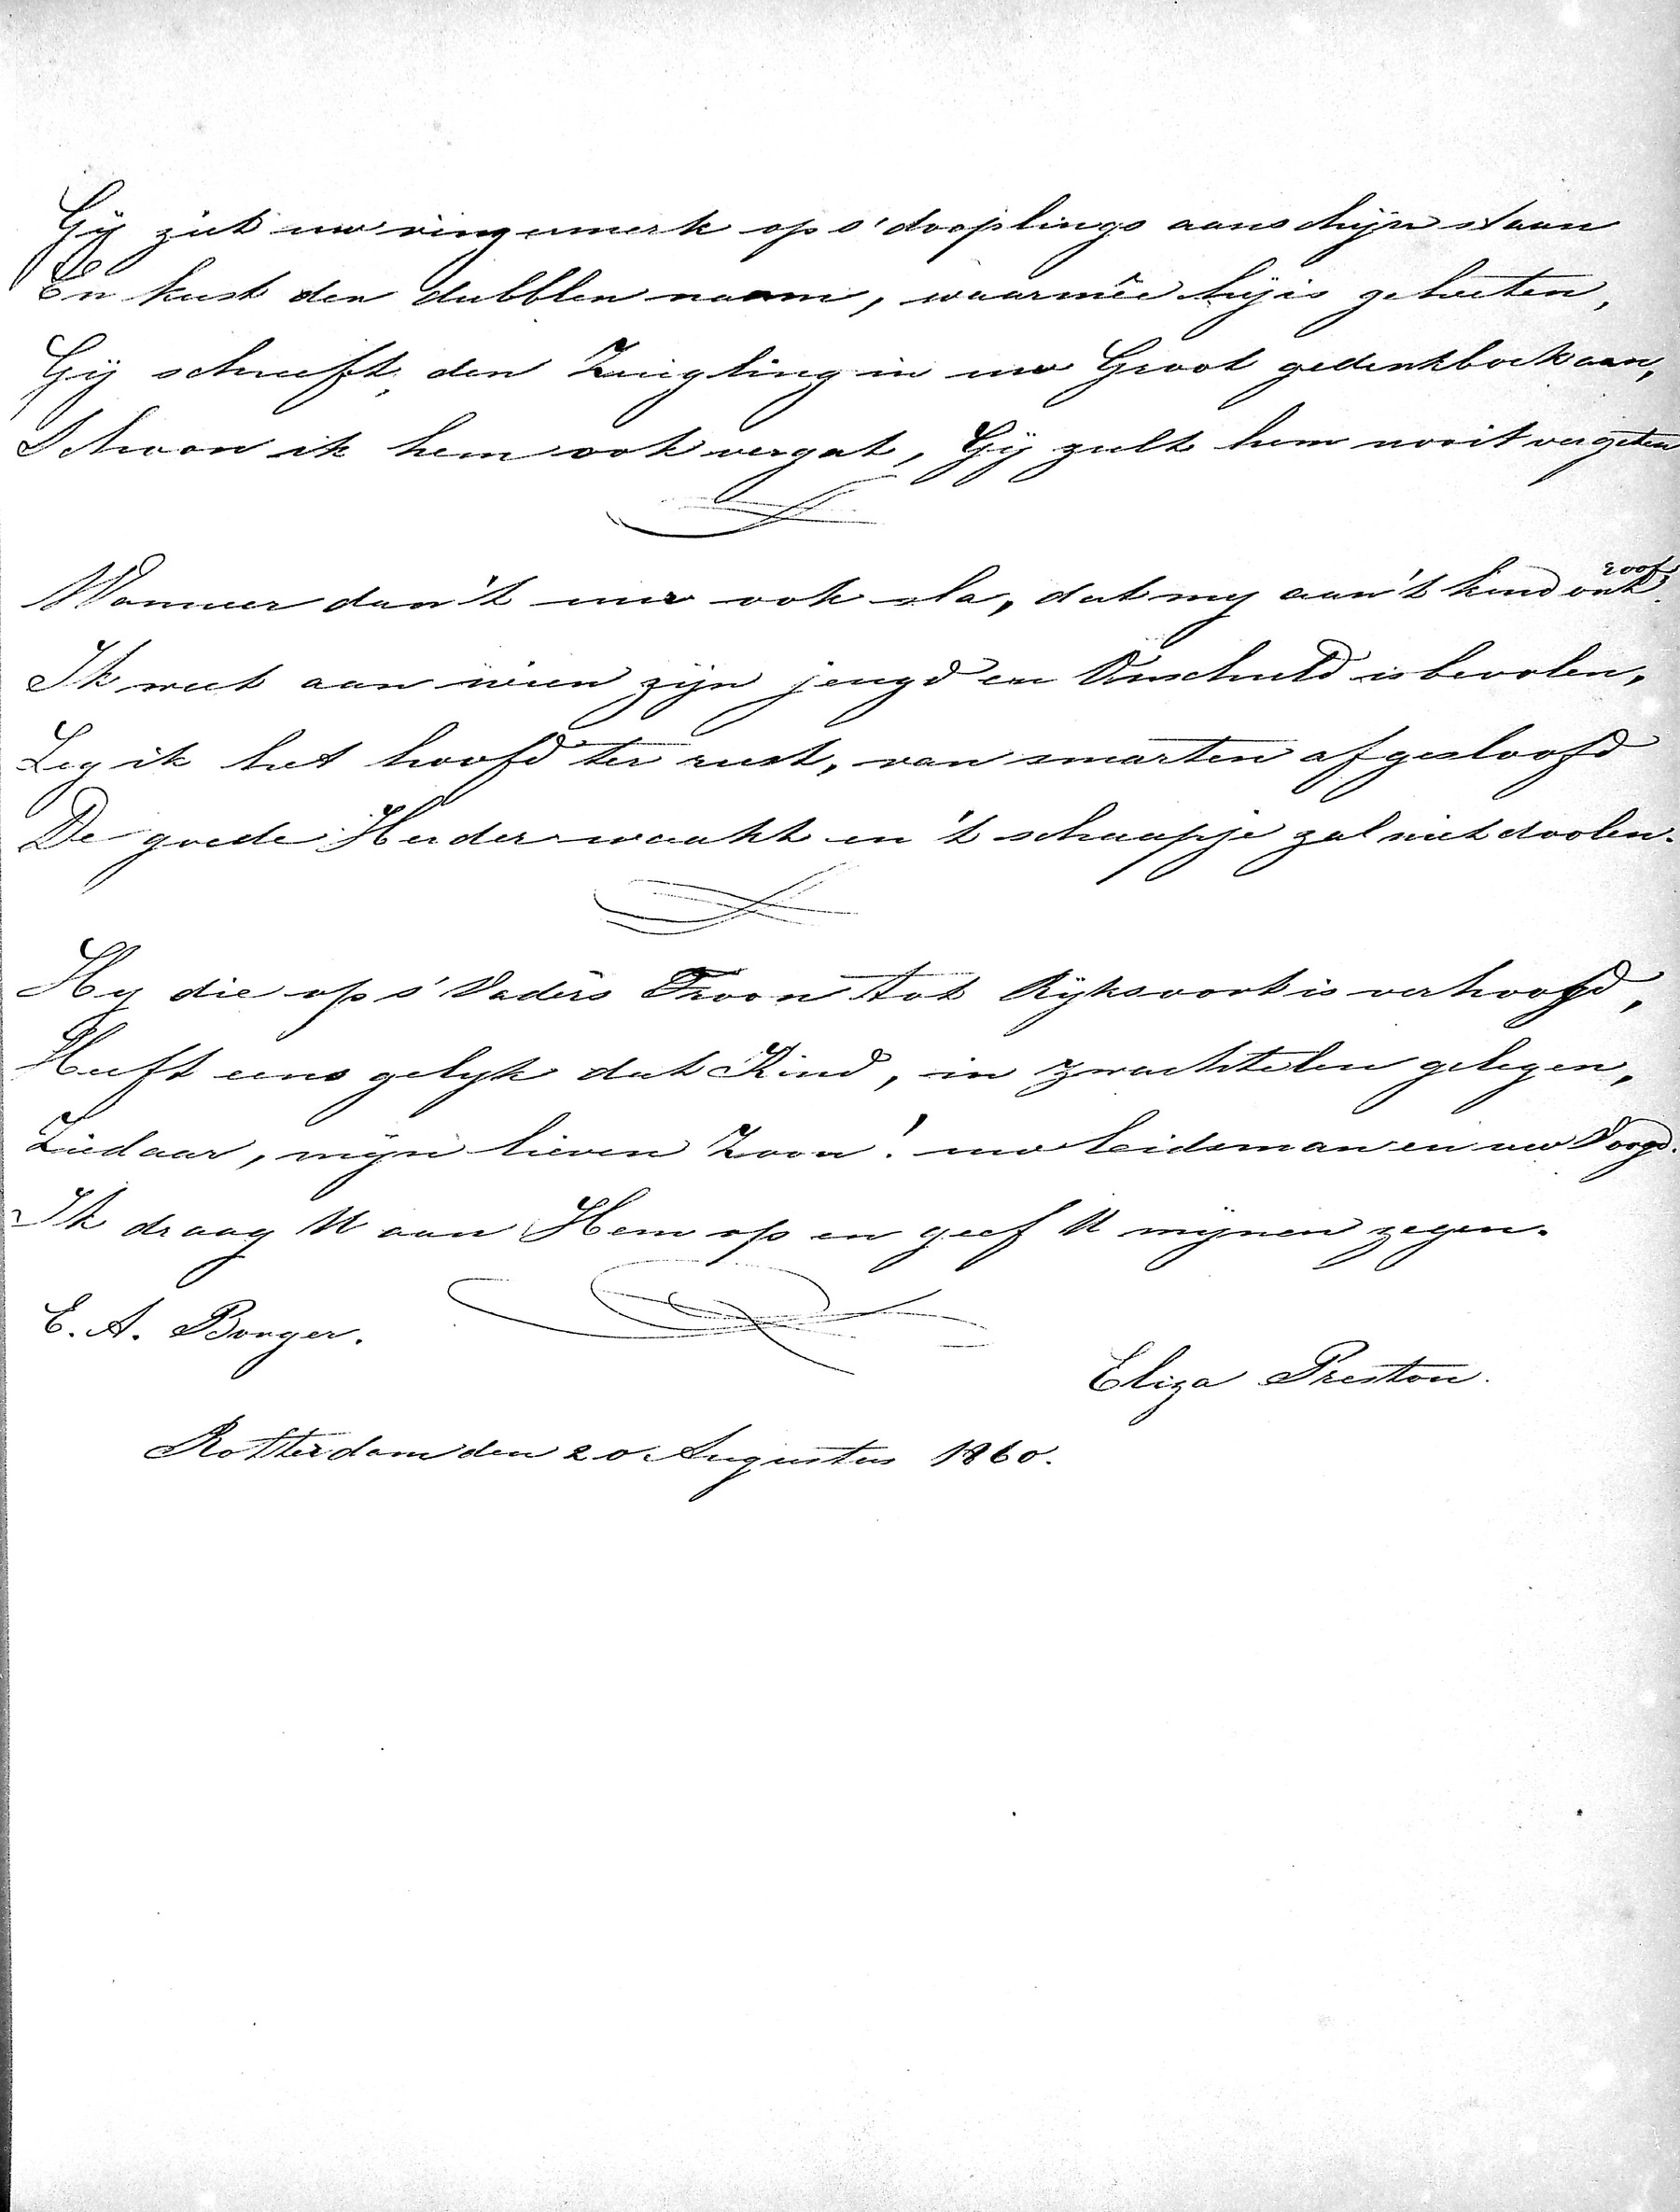 Gij ziet uw ringemerk op s' dooplings aanschijn staan
En kust den dubblen naam, waarmêe hij is geheeten,
Gij schreeft, den Zuigling in uw Groot gedenkboek aan,
Schoon ik hem ook vergat, Gij zult hem nooit vergeten
Wanneer dan 't uur ook sla, dat my aan 't kind ontroof.
Ik weet aan wien zijn jeugd en Onschuld is bevolen,
Leg ik het hoofd ter rust, van smarten afgesloofd
De goede Herder waakt en 't schaapje zal niet doolen.
Hy die op s' Vaders Troon tot Rijksvoogt is verhoogd,
Heeft eens gelyk dat Kind, in zwachtelen gelegen,
Ziedaar, mijn lieven Zoon! uw leidsman en uw Voogd.
Ik draag U aan Hem op en geef U mijnen zegen.
E. A. Borger.
Eliza Preston.
Rotterdam den 20 Augustus 1860.